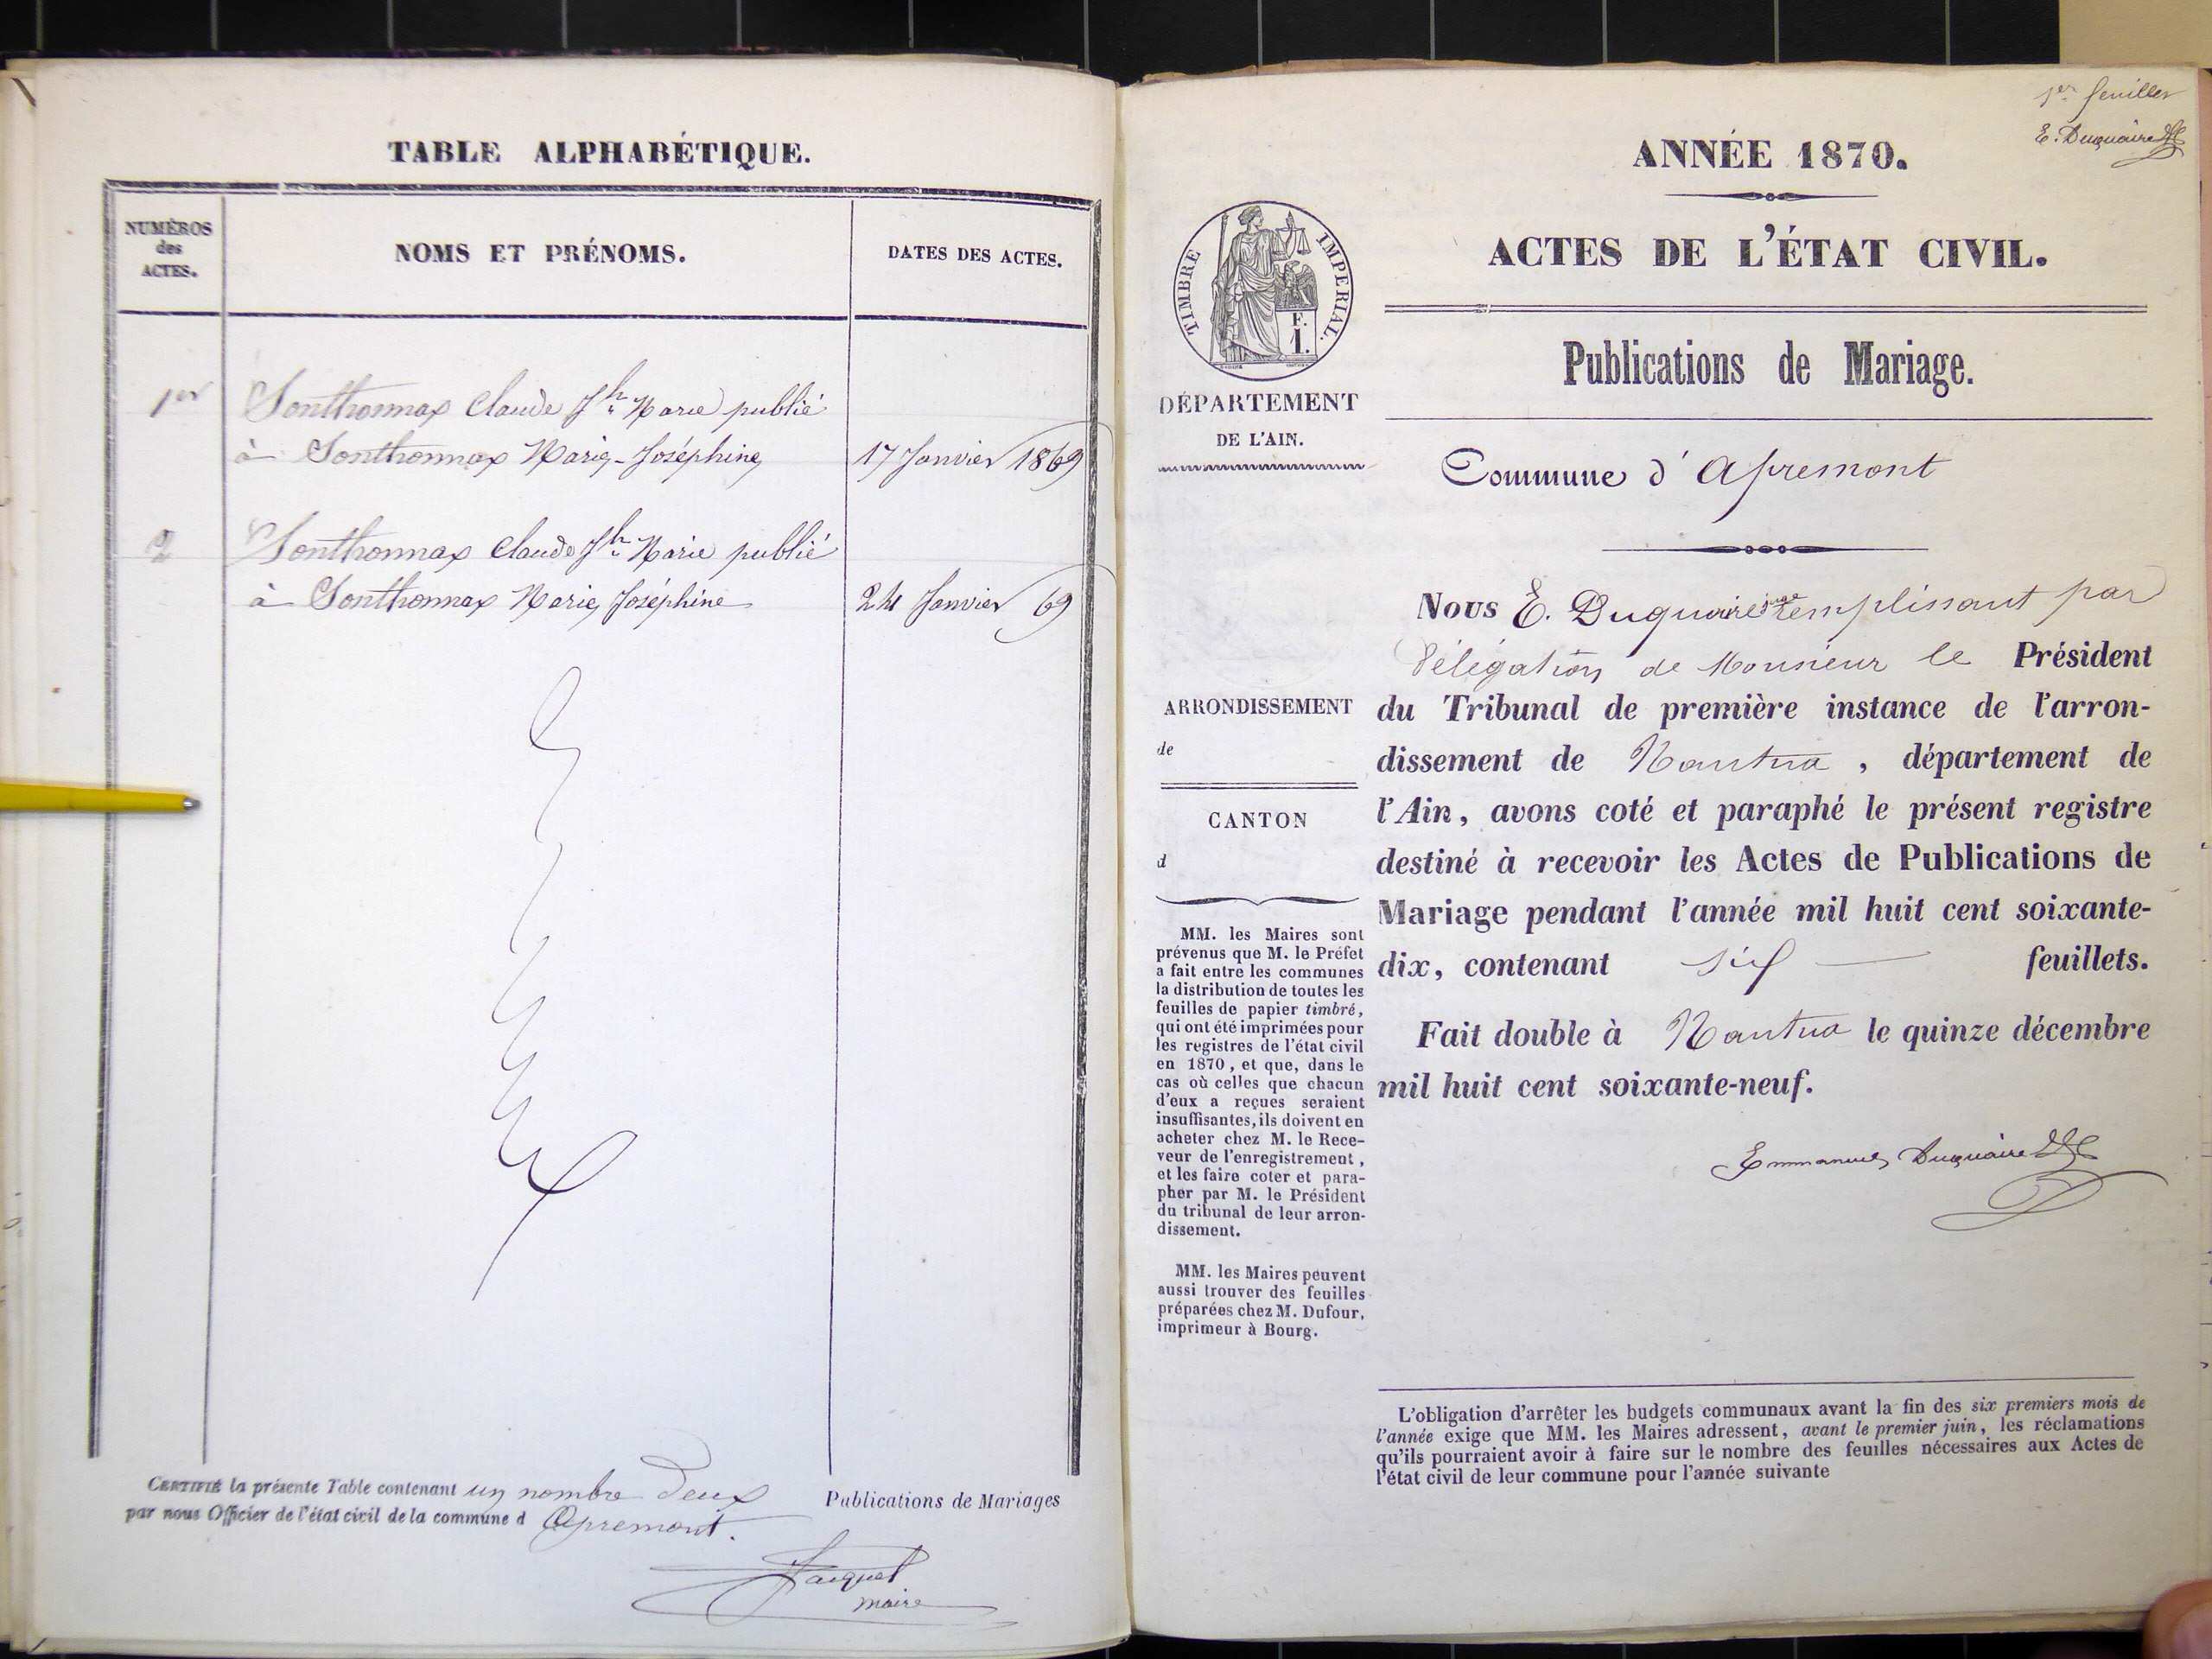 TABLE ALPHABÉTIQUE.
NUMÉROS
des
ACTES.
NOMS ET PRÉNOMS.
DATES DES ACTES.
1er Sonthonnax Claude Jh Marie publié
à Sonthonnax Marie-Joséphine 17 Janvier 1869
2 Sonthonnax Claude Jh Marie publié
à Sonthonnax Marie Joséphine 24 Janvier 69
CERTIFIÉ la présente Table contenant un nombre deux Publications de Mariages
par nous Officier de l'état civil de la commune d Apremont.
Jacquet
maire
1er feuillet
E. Duquaire
ANNÉE 1870.
ACTES DE L'ÉTAT CIVIL.
Publications de Mariage.
TIMBRE IMPERIAL.
F.
1.
DÉPARTEMENT
DE L'AIN.
Commune d'Apremont
Nous E. Duquaire juge remplissant par
délégation de Monsieur le Président
du Tribunal de première instance de l'arron-
dissement de Nantua, département de
l'Ain, avons coté et paraphé le présent registre
destiné à recevoir les Actes de Publications de
Mariage pendant l'année mil huit cent soixante-
dix, contenant six feuillets.
Fait double à Nantua le quinze décembre
mil huit cent soixante-neuf.
Emmanuel Duquaire
ARRONDISSEMENT
de
CANTON
d
MM. les Maires sont
prévenus que M. le Préfet
a fait entre les communes
la distribution de toutes les
feuilles de papier timbré,
qui ont été imprimées pour
les registres de l'état civil
en 1870, et que, dans le
cas où celles que chacun
d'eux a reçues seraient
insuffisantes, ils doivent en
acheter chez M. le Rece-
veur de l'enregistrement,
et les faire coter et para-
pher par M. le Président
du tribunal de leur arron-
dissement.
MM. les Maires peuvent
aussi trouver des feuilles
préparées chez M. Dufour,
imprimeur à Bourg.
L'obligation d'arrêter les budgets communaux avant la fin des six premiers mois de
l'année exige que MM. les Maires adressent, avant le premier juin, les réclamations
qu'ils pourraient avoir à faire sur le nombre des feuilles nécessaires aux Actes de
l'état civil de leur commune pour l'année suivante